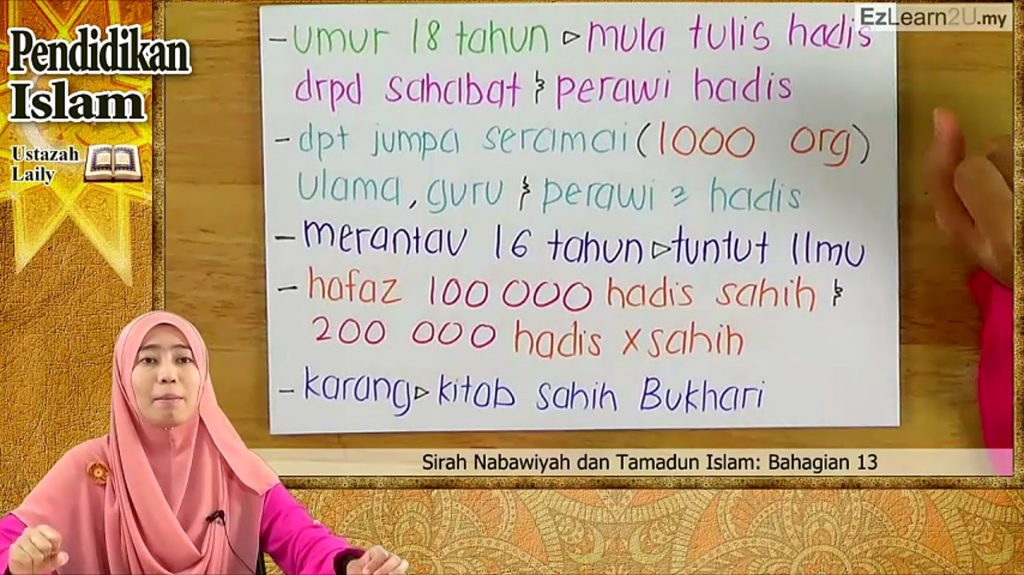 EzLearn2U.my
Pendidikan
Islam
Ustazah
Laily
- umur 18 tahun ▹ mula tulis hadis
drpd sahabat & perawi hadis
- dpt jumpa seramai (1000 org)
ulama, guru & perawi² hadis
- merantau 16 tahun ▹ tuntut Ilmu
- hafaz 100 000 hadis sahih &
200 000 hadis x sahih
- karang ▹ kitab sahih Bukhari
Sirah Nabawiyah dan Tamadun Islam: Bahagian 13